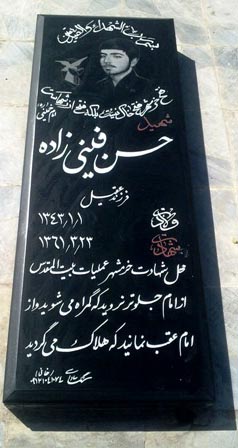 بسم رب الشهداء و الصدیقین
شهید
حسن فینی زاده
فرزند عقیل
ولادت ۱۳۴۳,۱,۱
شهادت ۱۳۶۱,۳,۲۳
محل شهادت خرمشهر عملیات بیت المقدس
از امام جلوتر نروید که گمراه می شوید و از
امام عقب نمانید که هلاک می گردید